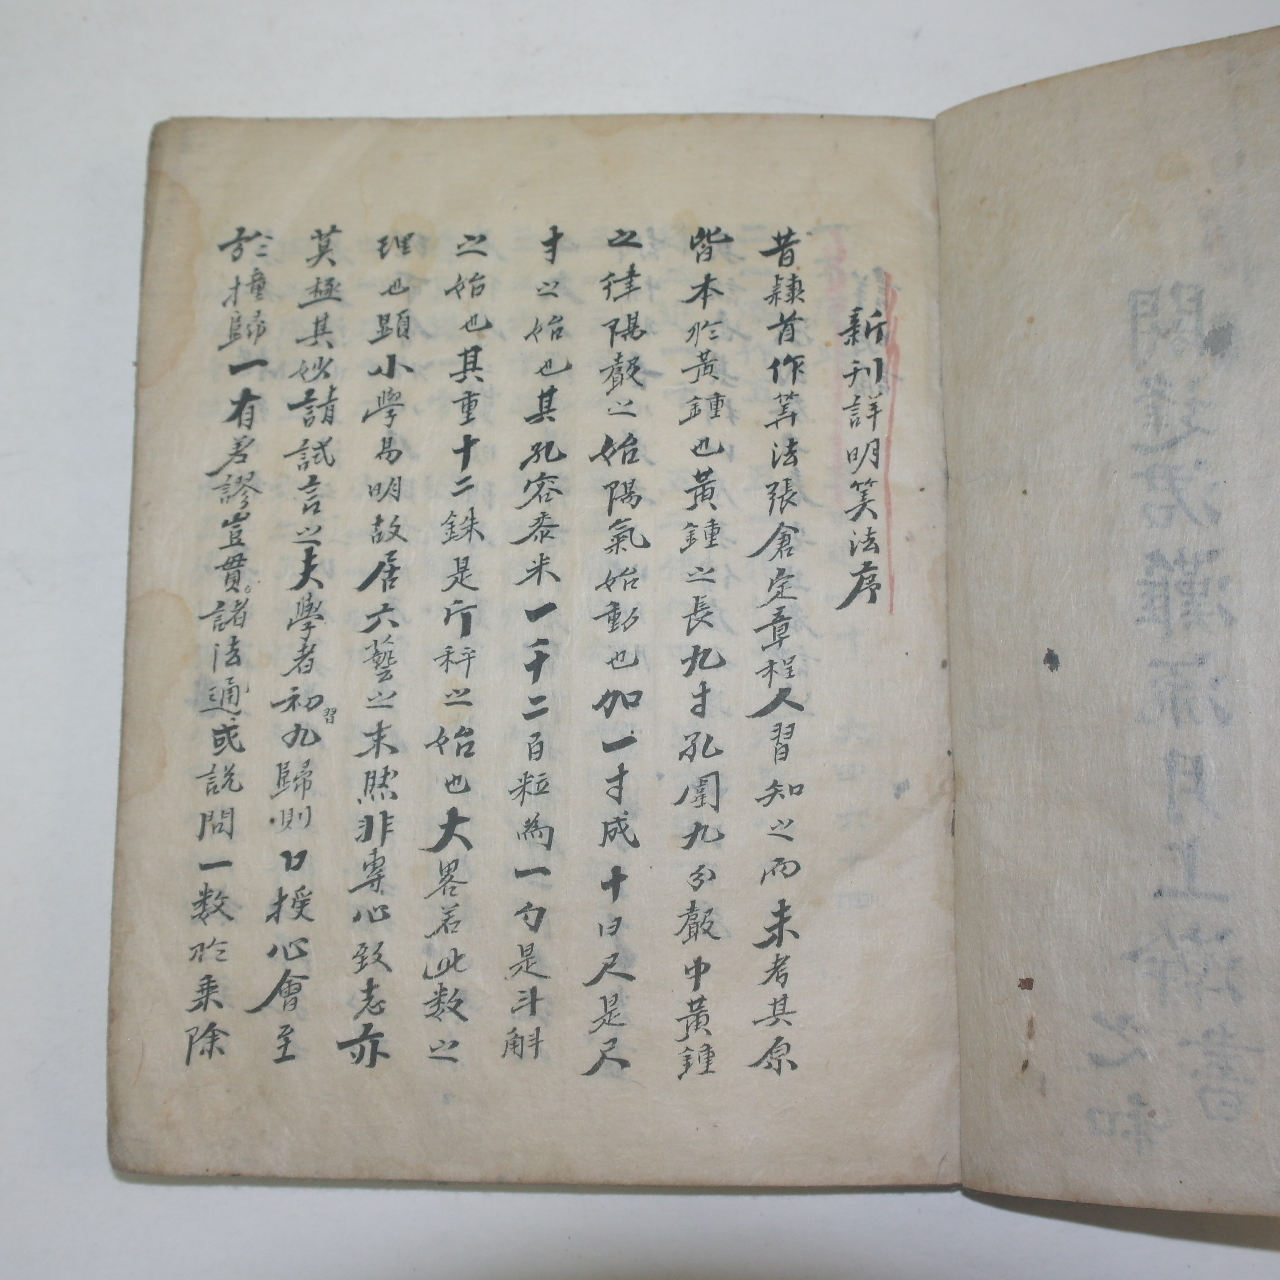 新刊詳明筭法序
昔隸首作筭法張倉定章程人習知之而未考其原
皆本於黃鍾也黃鍾之長九寸孔圍九分聲中黃鍾
之律陽聲之始陽氣始動也加一寸成十曰尺是尺
寸之始也其孔容黍米一千二百粒為一勺是斗斛
之始也其重十二銖是斤秤之始也大畧若此数之
理也顯小學易明故居六藝之末然非專心致志亦
莫極其妙請試言之夫學者初習九歸則口授心會至
於撞歸一有差謬豈貫諸法通或說問一数於乘除